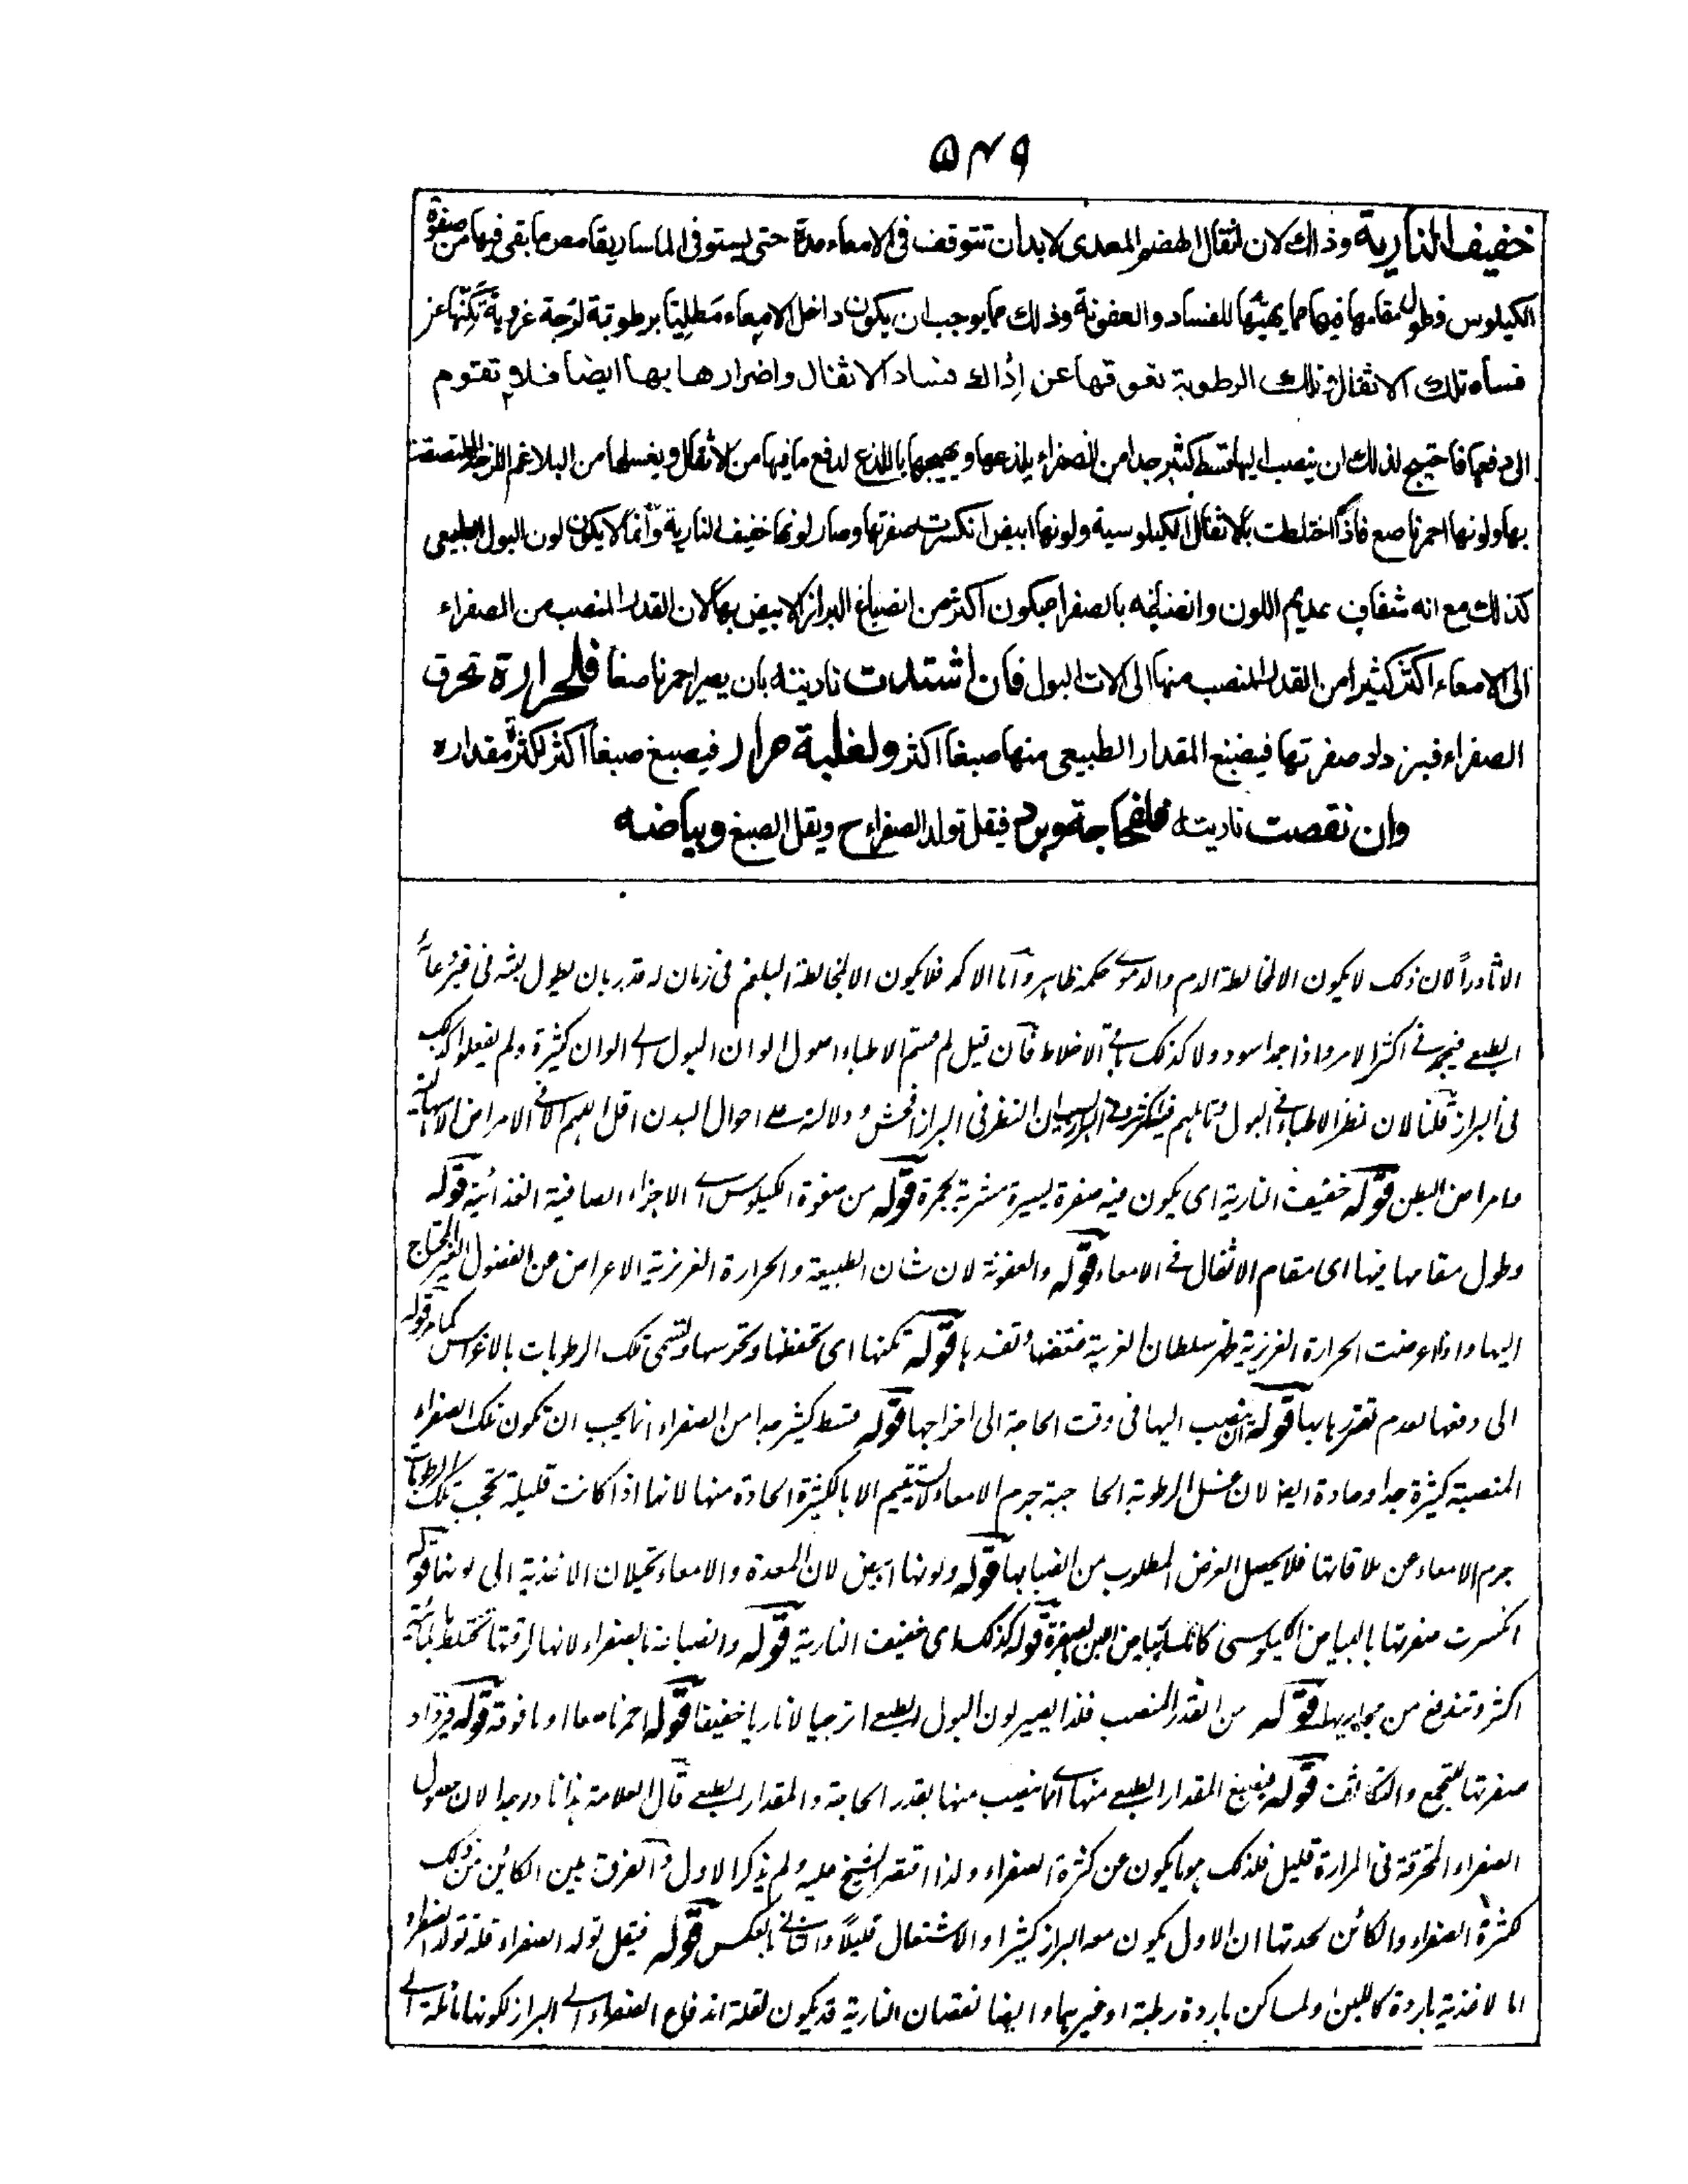 ۵۴۹
خفيف النارية وذلك لان اثقال الهضم المعدى لابد ان تتوقف فى الامعاء مدة حتى يستوفى الماساريقا مص ما بقى فيها من صفوة
الكيلوس وطول مقامها فيها مما يهيئها للفساد والعفونة وذلك مما يوجب ان يكون داخل الامعاء مطليا برطوبة لزجة غروية تكنها عن
فساد تلك الاثفال وتلك الرطوبة تعوقها عن ادراك فساد الاثفال واضرارها بها ايضا فلا تقوم
الى دفعها فاحتيج لذلك ان ينصب اليها قسط كثير جدا من الصفراء يلذعها ويهيجها باللذع لدفع ما فيها من الاثفال ويغسلها من البلاغم اللزجة الملتصقة
بها ولونها احمر ناصع فاذا اختلطت بالاثفال الكيلوسية ولونها ابيض انكسرت صفرتها وصار لونها خفيف النارية وانما لا يكون لون البول الطبيعى
كذلك مع انه شفاف عديم اللون وانصباغه بالصفراء يكون اكثر من انصباغ البراز الابيض بها لان القدر المنصب من الصفراء
الى الامعاء اكثر كثيرا من القدر المنصب منها الى الات البول فان اشتدت ناريته بان يصير احمر ناصعا فلحرارة تحرق
الصفراء فيزداد صفرتها فيصبغ المقدار الطبيعى منها صبغا اكثر ولغلبة مرار فيصبغ صبغا اكثر لكثرة مقداره
وان نقصت ناريته فلفجاجة وبرد فيقل تولد الصفراء ح ويقل الصبغ وبياضه
الا نادرا لان ذلك لا يكون الا لمخالطة الدم والدموى حكمه ظاهر واما الاكمد فلا يكون الا لمخالطة البلغم فى زمان له قدر بان يطول لبثه فى غير وعائه
الطبعى فيجمد فى اكثر الامر واذا جمد اسود ولا كذلك باقى الاخلاط فان قيل لم قسم الاطباء اصول الوان البول الى الوان كثيرة ولم يفعلوا كذلك
فى البراز قلنا لان نظر الاطباء فى البول وتاملهم فيه اكثر من البراز لان النظر فى البراز افحش ودلالته على احوال البدن اقل اللهم الا فى الامراض الاسهالية
وامراض البطن قوله خفيف النارية اى يكون فيه صفرة يسيرة مشربة بحمرة قوله من صفوة الكيلوس اى الاجزاء الصافية الغذائية قوله
وطول مقامها فيها اى مقام الاثفال فى الامعاء قوله والعفونة لان شان الطبيعة والحرارة الغريزية الاعراض عن الفضول الغير المحتاج
اليها واذا اعرضت الحرارة الغريزية ظهر سلطان الغريبة فتعفنها وتفسدها قوله تكنها اى تحفظها وتحرسها وتسمى تلك الرطوبات بالاغراس كما مر قوله
الى دفعها لعدم تضررها بها قوله ان ينصب اليها فى وقت الحاجة الى اخراجها قوله قسط كثير جدا من الصفراء انما يجب ان تكون تلك الصفراء
المنصبة كثيرة جدا وحادة ايضا لان غسل الرطوبة الحاجبة جرم الامعاء لا يستقيم الا بالكثيرة الحادة منها لانها اذا كانت قليلة تحجب تلك الرطوبات
جرم الامعاء عن ملاقاتها فلا يحصل الغرض المطلوب من انصبابها قوله ولونها ابيض لان المعدة والامعاء تحيلان الاغذية الى لونهما قوله
انكسرت صفرتها بالبياض الكيلوسى قوله كذلك اى خفيف النارية قوله وانصباغه بالصفراء لانها لرقتها تختلط بالمائية
اكثر وتندفع من مجاريها قوله من القدر المنصب فلذا يصير لون البول الطبعى اترجيا لا ناريا خفيفا قوله احمر ناصعا او ما فوقه قوله فيزداد
صفرتها للتجمع والتكاثف قوله فيصبغ المقدار الطبعى منها اى ما ينصب منها بقدر الحاجة والمقدار الطبعى قال العلامة هذا نادر جدا لان حصول
الصفراء المحترقة فى المرارة قليل فلذلك هو ما يكون عن كثرة الصفراء ولذا اقتصر الشيخ عليه ولم يذكر الاول والفرق بين الكائن من ذلك
لكثرة الصفراء والكائن لحدتها ان الاول يكون معه البراز كثيرا والاشتعال قليلا والثانى بالعكس قوله فيقل تولد الصفراء قلة تولد الصفراء
اما لاغذية باردة كاللبن ولمساكن باردة رطبة او غيرهما وايضا نقصان النارية قد يكون لقلة اندفاع الصفراء الى البراز لكونها مائلة الى